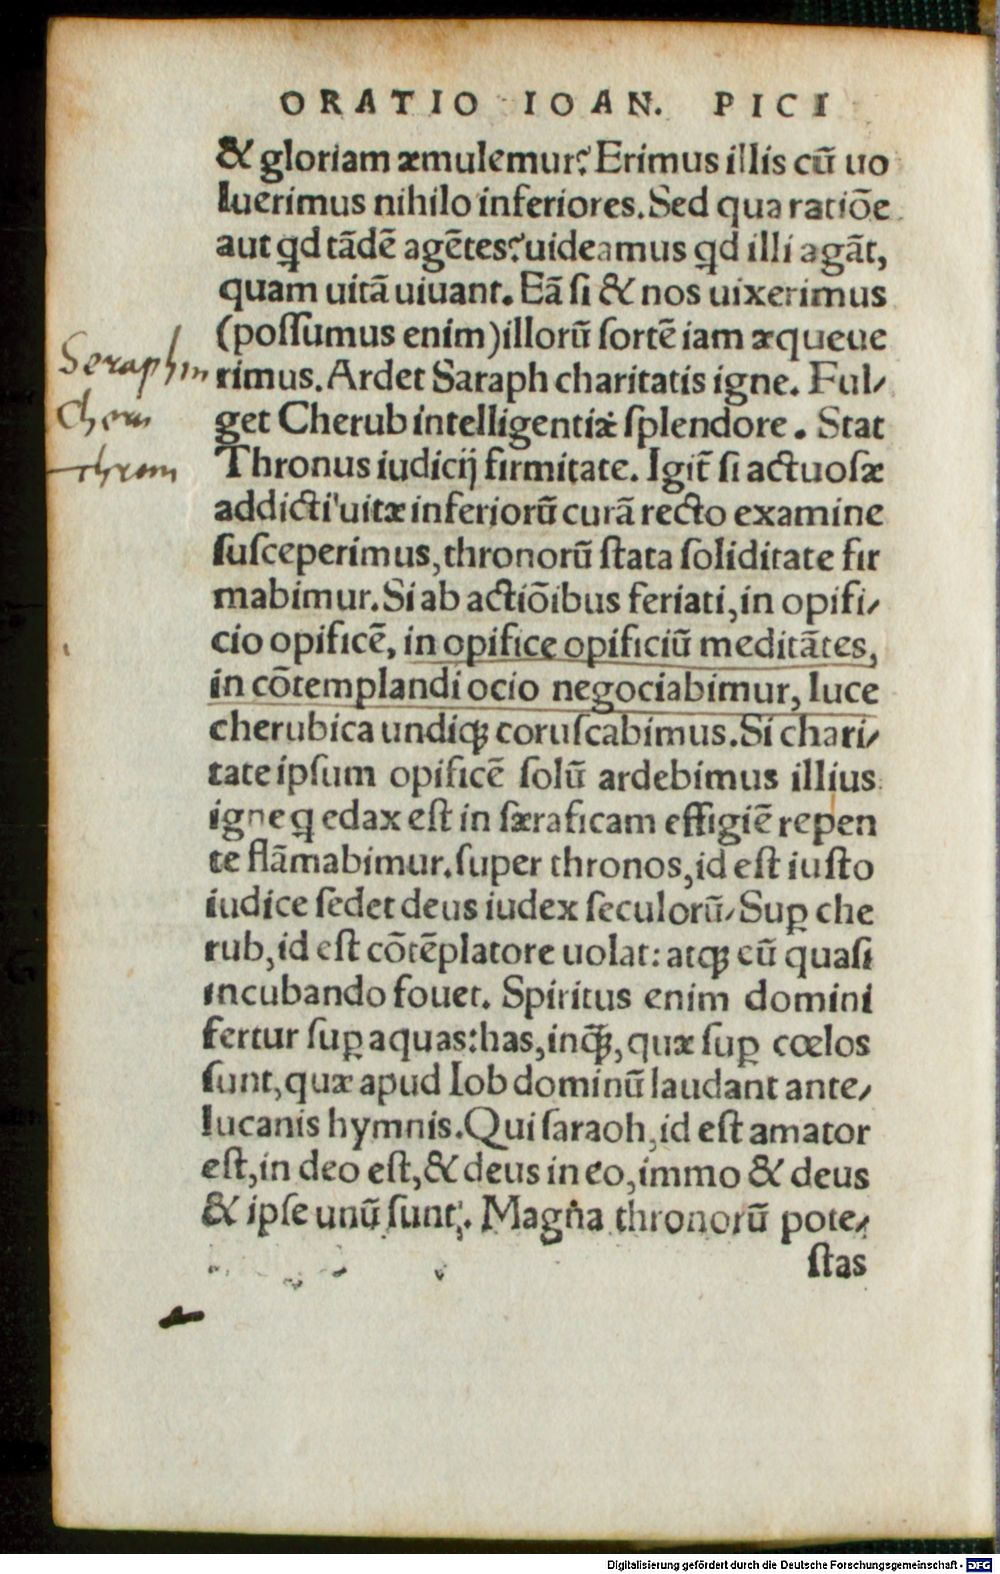 ORATIO IOAN. PICI
& gloriam æmulemur? Erimus illis cū uo
luerimus nihilo inferiores. Sed qua ratiōe
aut qd tādē agētes? uideamus qd illi agāt,
quam uitā uiuant. Eā si & nos uixerimus
(possumus enim) illorū sortē iam æqueue
Seraphin
rimus. Ardet Saraph charitatis igne. Ful/
Cheru
get Cherub intelligentiæ splendore. Stat
thron
Thronus iudicij firmitate. Igit̄ si actuosæ
addicti uitæ inferiorū curā recto examine
susceperimus, thronorū stata soliditate fir
mabimur. Si ab actiōibus feriati, in opifi/
cio opificē, in opifice opificiū meditātes,
in cōtemplandi ocio negociabimur, luce
cherubica undiqꝫ coruscabimus. Si chari/
tate ipsum opificē solū ardebimus illius
igne q edax est in særaficam effigiē repen
te flāmabimur. super thronos, id est iusto
iudice sedet deus iudex seculorū/ Suꝑ che
rub, id est cōtēplatore uolat: atqꝫ eū quasi
incubando fouet. Spiritus enim domini
fertur suꝑ aquas: has, inq̄ꝫ, quæ suꝑ cœlos
sunt, quæ apud Iob dominū laudant ante/
lucanis hymnis. Qui saraoh, id est amator
est, in deo est, & deus in eo, immo & deus
& ipse unū sunt. Magna thronorū pote/
stas
Digitalisierung gefördert durch die Deutsche Forschungsgemeinschaft - DFG